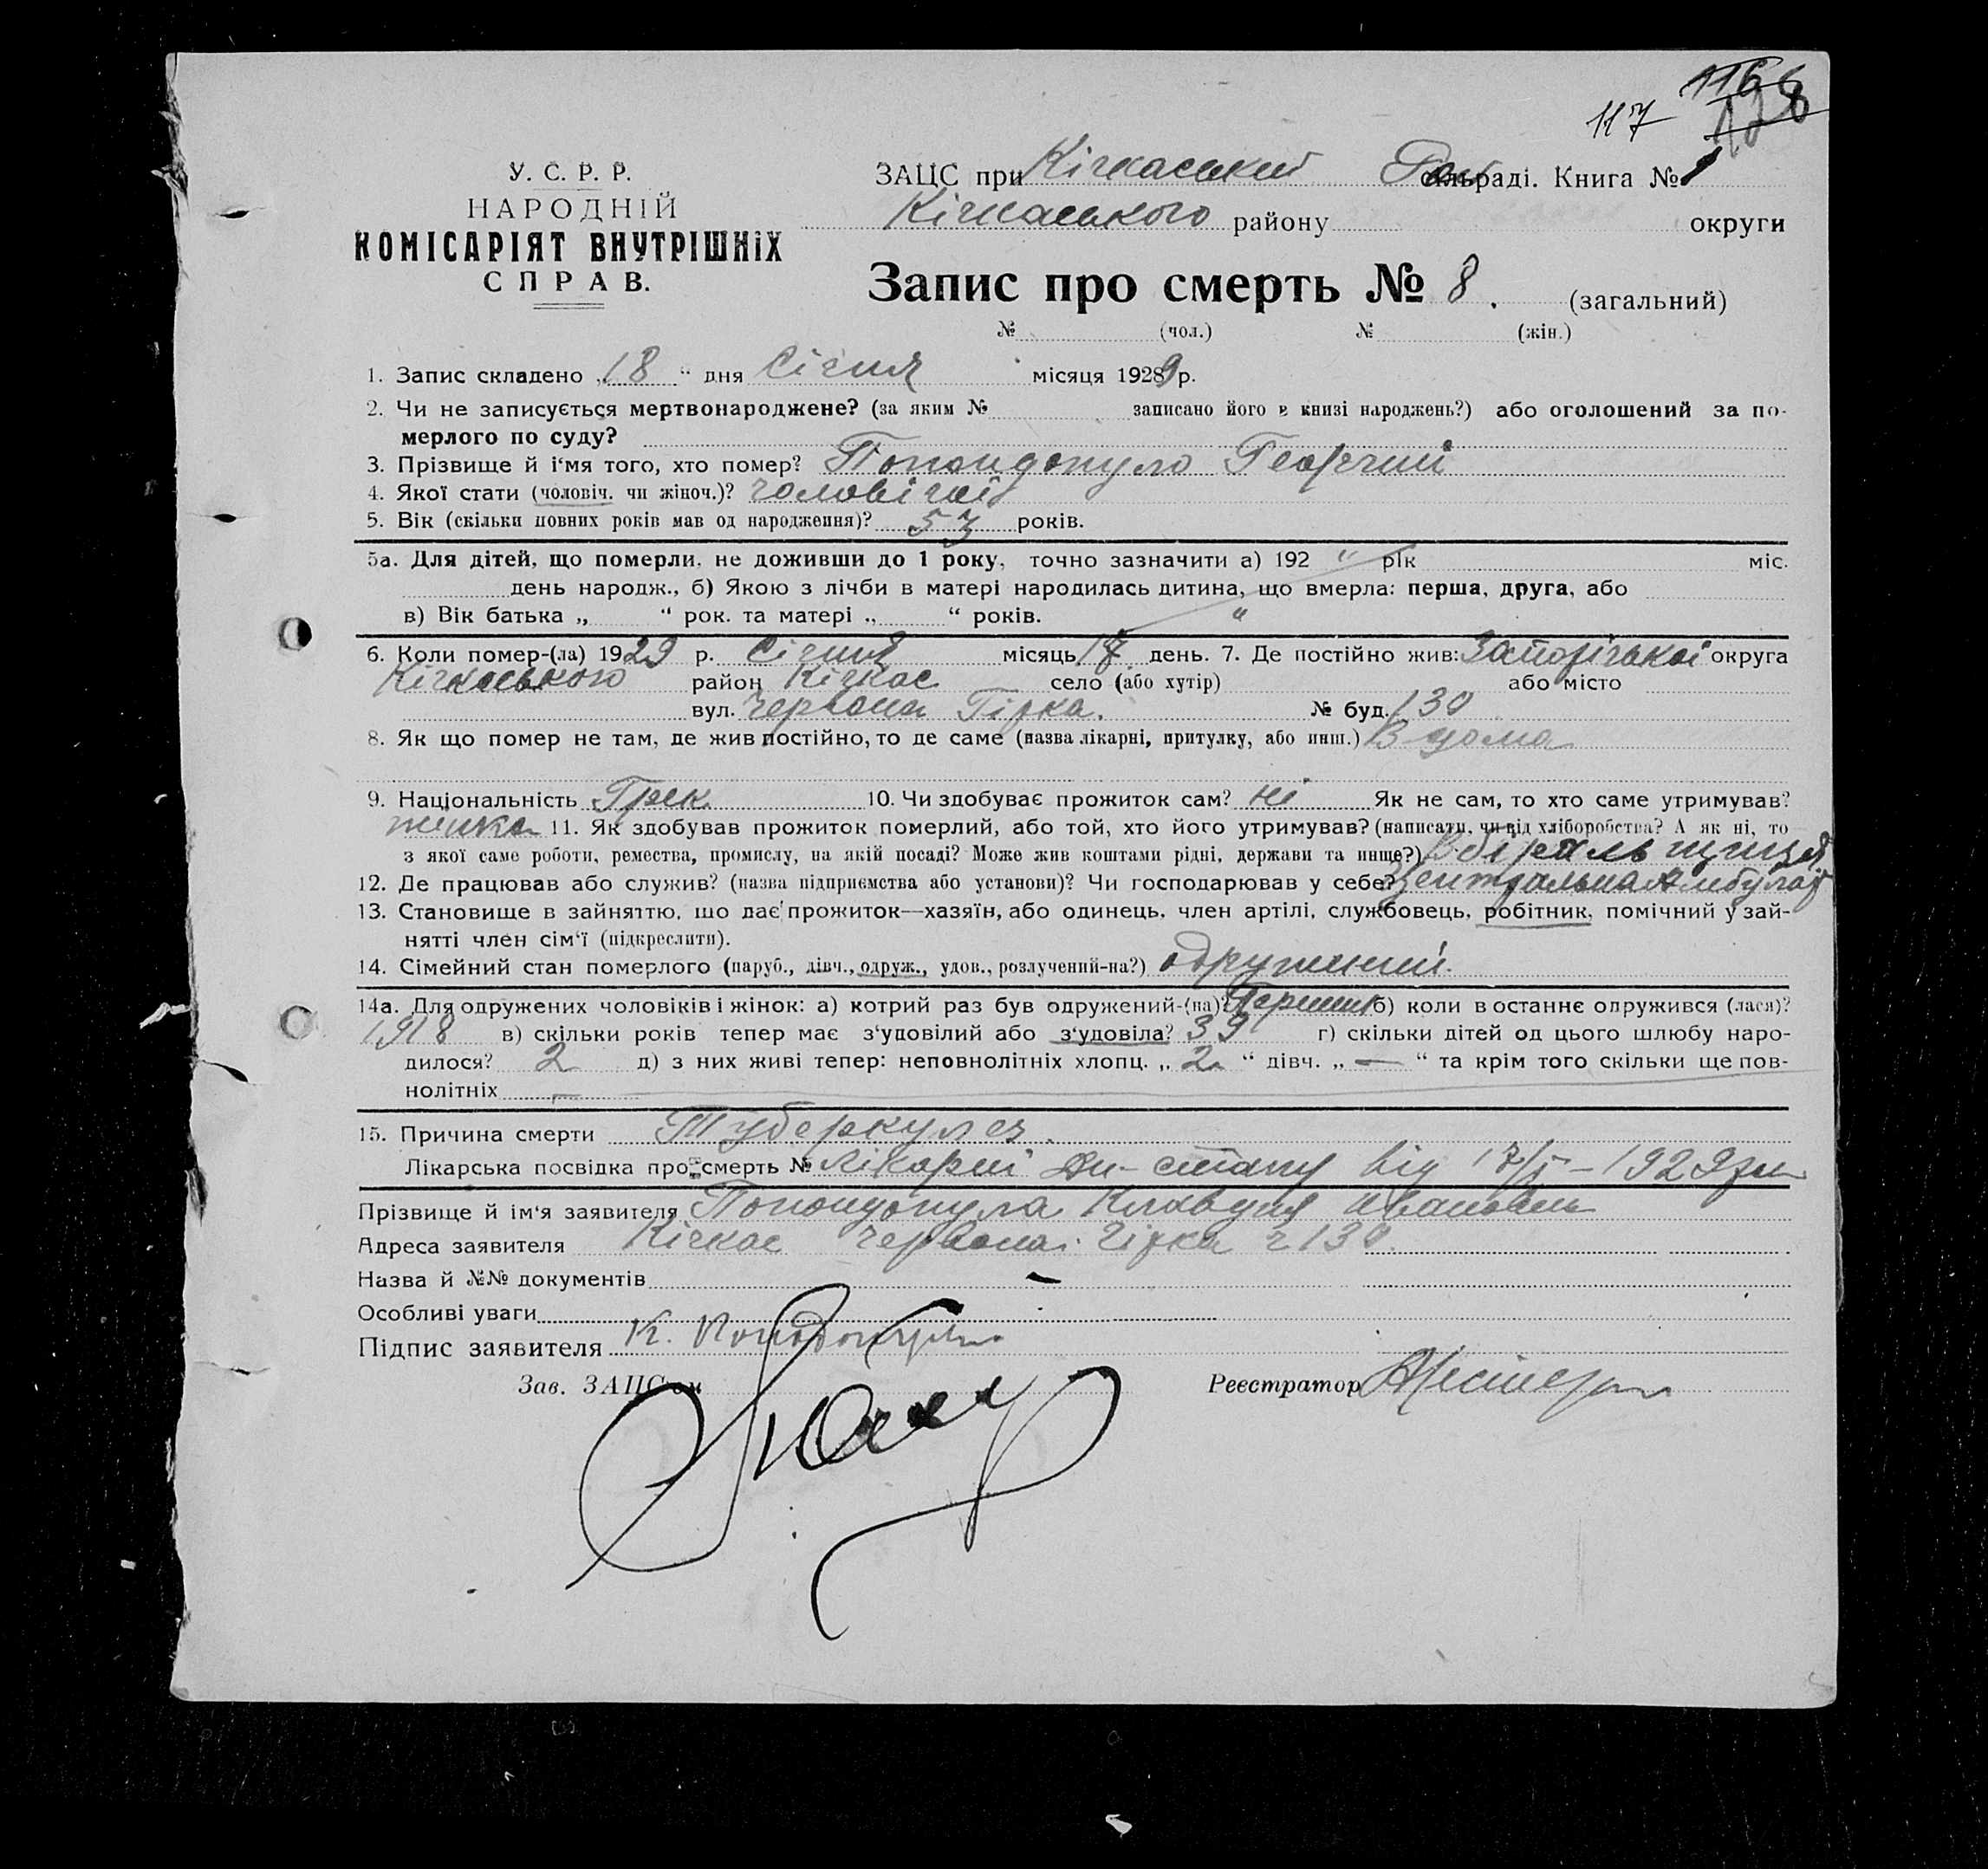 116
117 128
У. С. Р. Р.
НАРОДНІЙ
КОМІСАРІЯТ ВНУТРІШНІХ
СПРАВ.
ЗАЦС при Кічкаський сільраді. Книга № 1
Кічкаського району округи
Запис про смерть № 8. (загальний)
№ (чол.) № (жін.)
1. Запис складено „18“ дня Січня місяця 1929 р.
2. Чи не записується мертвонароджене? (за яким № записано його в книзі народжень?) або оголошений за по-
мерлого по суду?
3. Прізвище й і'мя того, хто помер? Попондопуло Георгий
4. Якої стати (чоловіч. чи жіноч.)? чоловічої
5. Вік (скільки повних років мав од народження)? 53 років.
5а. Для дітей, що померли, не доживши до 1 року, точно зазначити а) 192 " рік міс.
день народж., б) Якою з лічби в матері народилась дитина, що вмерла: перша, друга, або
в) Вік батька „ “ рок. та матері „ “ років. "
6. Коли помер-(ла) 1929 р. Січня місяць 17 день. 7. Де постійно жив: Запорізької округа
Кічкаського район Кічкас село (або хутір) або місто
вул. Червона Гірка. № буд. 130
8. Як що помер не там, де жив постійно, то де саме (назва лікарні, притулку, або инш.) В дома
9. Національність Грек 10. Чи здобуває прожиток сам? ні Як не сам, то хто саме утримував?
жинка 11. Як здобував прожиток померлий, або той, хто його утримував? (написати, чи від хліборобства? А як ні, то
з якої саме роботи, ремества, промислу, на якій посаді? Може жив коштами рідні, держави та инще?)
12. Де працював або служив? (назва підприємства або установи)? Чи господарював у себе? Центральна Амбулат
13. Становище в зайняттю, що дає прожиток—хазяїн, або одинець, член артілі, службовець, робітник, помічний у зай-
нятті член сім'ї (підкреслити).
14. Сімейний стан померлого (паруб., дівч., одруж., удов., розлучений-на?) одружений.
14а. Для одружених чоловіків і жінок: а) котрий раз був одружений-(на)? Перший б) коли в останнє одружився (лася)?
1918 в) скільки років тепер має з'удовілий або з'удовіла? 39 г) скільки дітей од цього шлюбу наро-
дилося? 2 д) з них живі тепер: неповнолітніх хлопц. „2“ дівч. „—“ та крім того скільки ще пов-
нолітніх —
15. Причина смерти Туберкулез.
Лікарська посвідка про смерть № Лікарні від 17/I–1929р
Прізвище й ім'я заявителя Попондопула Клавдия Ивановна
Адреса заявителя Кічкас Червона Гірка ч 130
Назва й №№ документів —
Особливі уваги
Підпис заявителя К. Попондопуло
Зав. ЗАЦС'ом Реєстратор